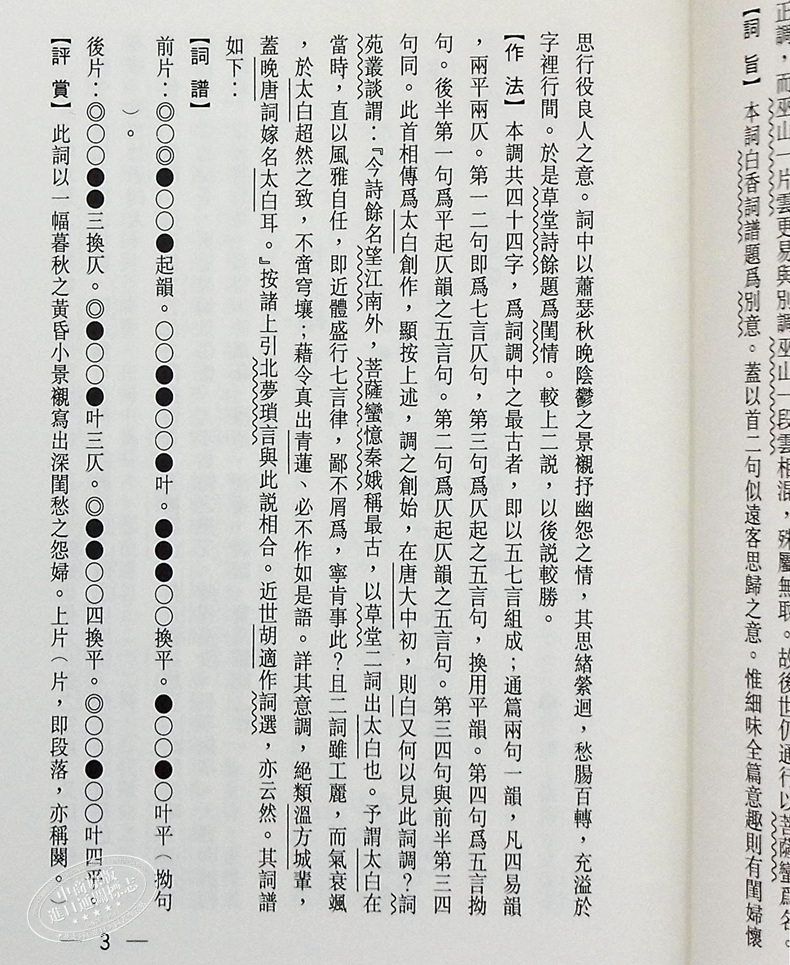 正調，而巫山一片雲更易與別調巫山一段雲相混，殊屬無取。故後世仍通行以菩薩蠻爲名。
【詞旨】本詞白香詞譜題爲別意。蓋以首二句似遠客思歸之意。惟細味全篇意趣則有閨婦懷
思行役良人之意。詞中以蕭瑟秋晚陰鬱之景襯抒幽怨之情，其思緒縈迴，愁腸百轉，充溢於
字裡行間。於是草堂詩餘題爲閨情。較上二説，以後説較勝。
【作法】本調共四十四字，爲詞調中之最古者，即以五七言組成；通篇兩句一韻，凡四易韻
，兩平兩仄。第一二句即爲七言仄句，第三句爲仄起之五言句，換用平韻。第四句爲五言拗
句。後半第一句爲平起仄韻之五言句。第二句爲仄起仄韻之五言句。第三四句與前半第三四
句同。此首相傳爲太白創作，顯按上述，調之創始，在唐大中初，則白又何以見此詞調？詞
苑叢談謂：『今詩餘名望江南外，菩薩蠻憶秦娥稱最古，以草堂二詞出太白也。予謂太白在
當時，直以風雅自任，即近體盛行七言律，鄙不屑爲，寧肯事此？且二詞雖工麗，而氣衰颯
，於太白超然之致，不啻穹壤；藉令真出青蓮、必不作如是語。詳其意調，絕類溫方城輩，
蓋晚唐詞嫁名太白耳。』按諸上引北夢瑣言與此説相合。近世胡適作詞選，亦云然。其詞譜
如下：
【詞譜】
前片：◎○◎●○○●起韻。○○●●○○●叶。●●●○○換平。●○○●○叶平（拗句
）。
後片：◎○○●●三換仄。◎●○○●叶三仄。◎●●○○四換平。◎○○●○○叶四平。
【評賞】此詞以一幅暮秋之黃昏小景襯寫出深閨愁之怨婦。上片（片，即段落，亦稱闋。）
— 3 —
中商商城
进口社图书标志